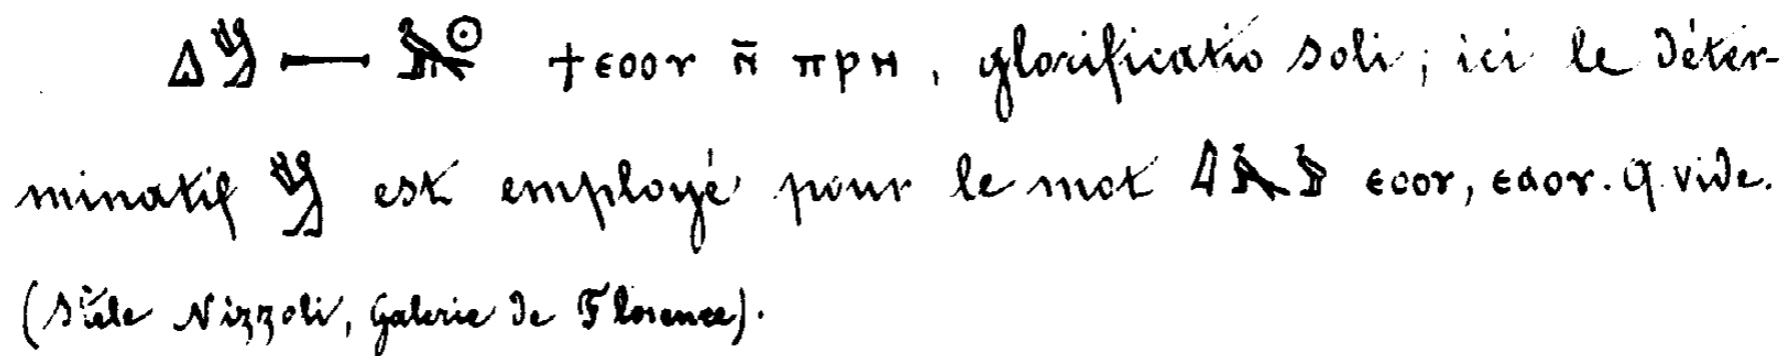 ϯⲉⲟⲟⲩ ⲛ̄ ⲡⲣⲏ, glorificatio soli; ici le déter-
minatif est employé pour le mot ⲉⲟⲟⲩ, ⲉⲁⲟⲩ. q. vide.
(Stèle Nizzoli, Galerie de Florence).